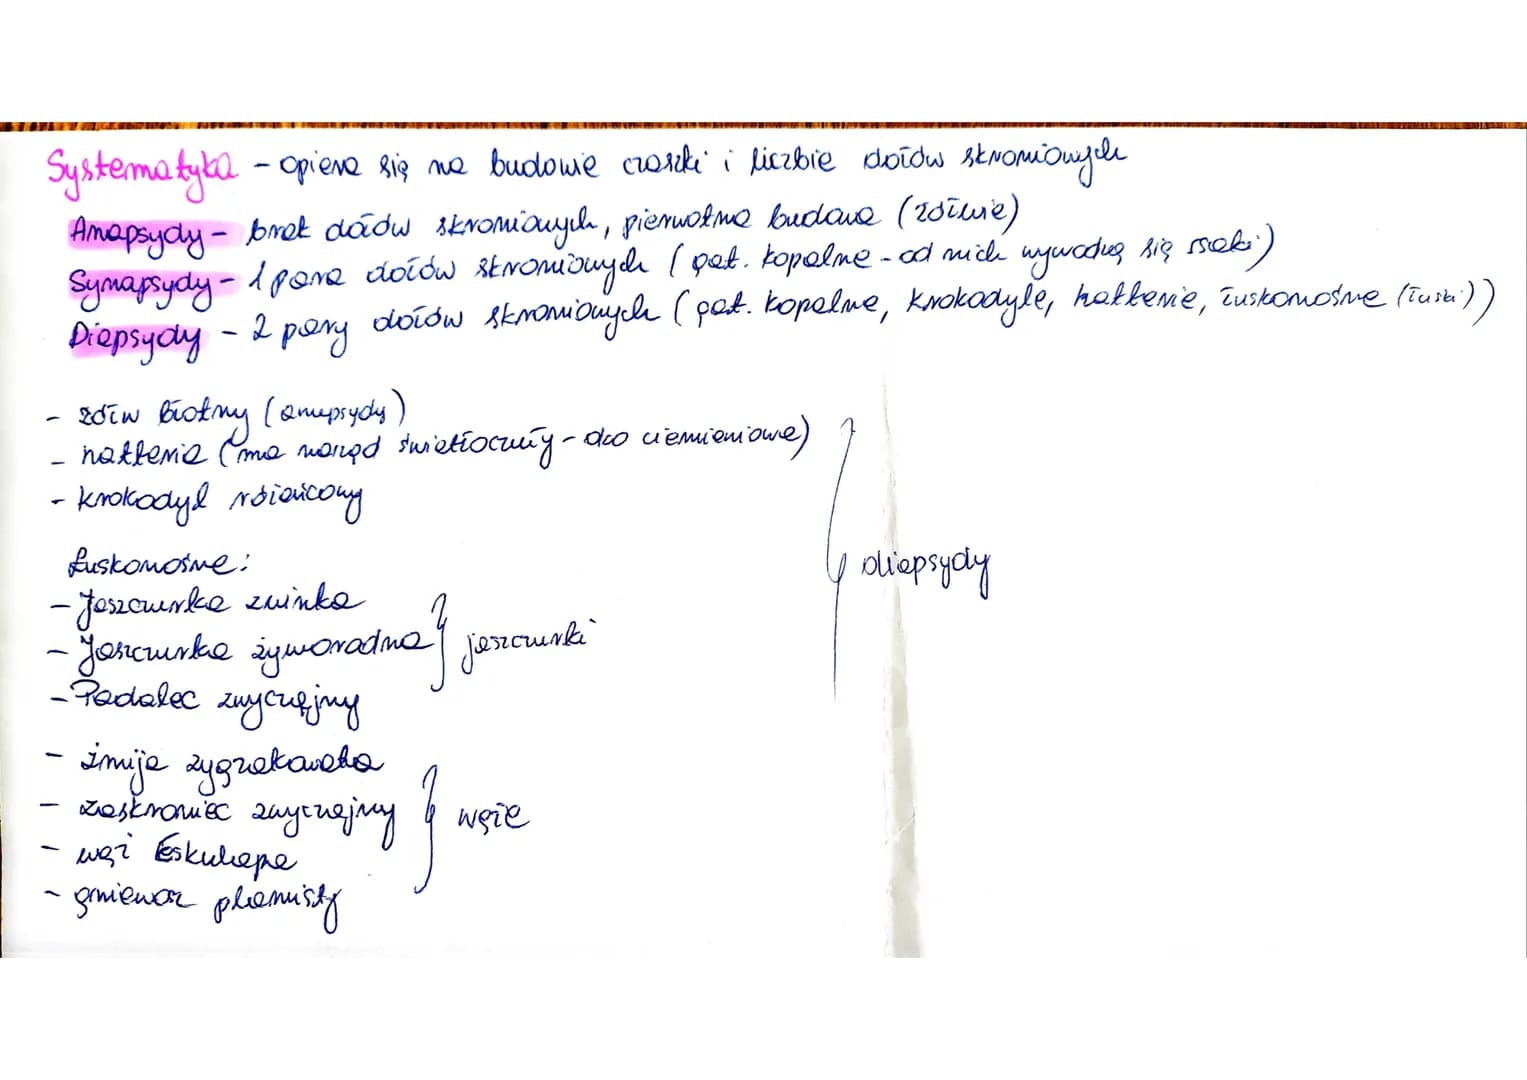 Systematyka - opiera się na budowie czaszki i liczbie dołów skroniowych
Anapsydy - brak dołów skroniowych, pierwotna budowa (żółwie)
Synapsydy - 1 para dołów skroniowych (gat. kopalne - od nich wywodzą się ssaki)
Diapsydy - 2 pary dołów skroniowych (gat. kopalne, krokodyle, hatterie, łuskonośne (łuski))
- żółw błotny (anapsydy)
- hatteria (ma narząd światłoczuły - oko ciemieniowe)
- krokodyl różańcowy
Łuskonośne:
- Jaszczurka zwinka
- Jaszczurka żyworodna
- Padalec zwyczajny
} jaszczurki
- żmija zygzakowata
- zaskroniec zwyczajny
- wąż Eskulapa
- gniewosz plamisty
} węże
} diapsydy